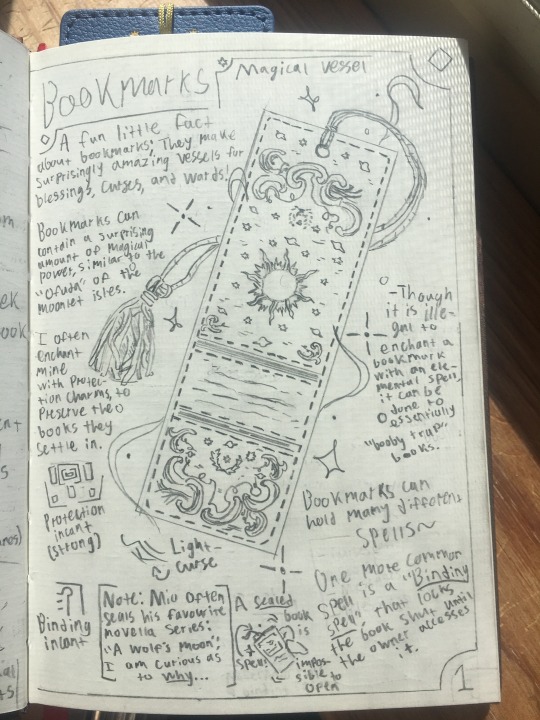 Bookmarks
Magical vessel
A fun little fact
about bookmarks; They make
surprisingly amazing vessels for
blessings, curses, and wards!
Bookmarks can
contain a surprising
amount of magical
power, similar to the
"Ofuda" of the
moonlet isles.
I often
enchant
mine
with protec-
tion charms, to
preserve the
books they
settle in.
-Though
it is ille-
gal to
enchant a
bookmark
with an ele-
mental spell,
it can be
done to
essentially
"booby trap"
books.
Protection
incant
(strong)
Light-
curse
Bookmarks can
hold many different
spells~
One more common
spell is a "Binding
spell" that locks
the book shut until
the owner accesses
it.
Binding
incant
Note: Miu often
seals his favourite
novella series:
"A Wolf's Moon",
I am curious as
to why...
A sealed
book
is
spell
impos-
sible to
open
1
ek
book
nt
s
ares)
ial
ts